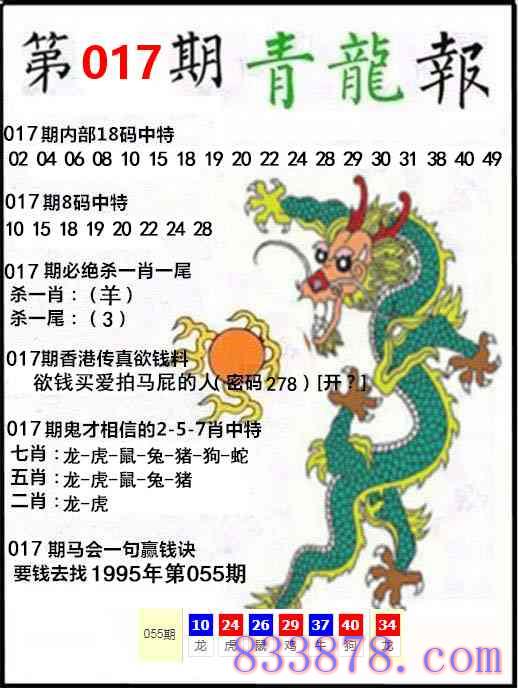 第017期青龍報
017期内部18码中特
02 04 06 08 10 15 18 19 20 22 24 28 29 30 31 38 40 49
017期8码中特
10 15 18 19 20 22 24 28
017期必绝杀一肖一尾
杀一肖：（羊）
杀一尾：（3）
017期香港传真欲钱料
欲钱买爱拍马屁的人（密码278）[开？]
017期鬼才相信的2-5-7肖中特
七肖：龙-虎-鼠-兔-猪-狗-蛇
五肖：龙-虎-鼠-兔-猪
二肖：龙-虎
017期马会一句赢钱诀
要钱去找1995年第055期
055期 10 24 26 29 37 40 34
龙 虎 鼠 鸡 牛 狗 龙
833878.com